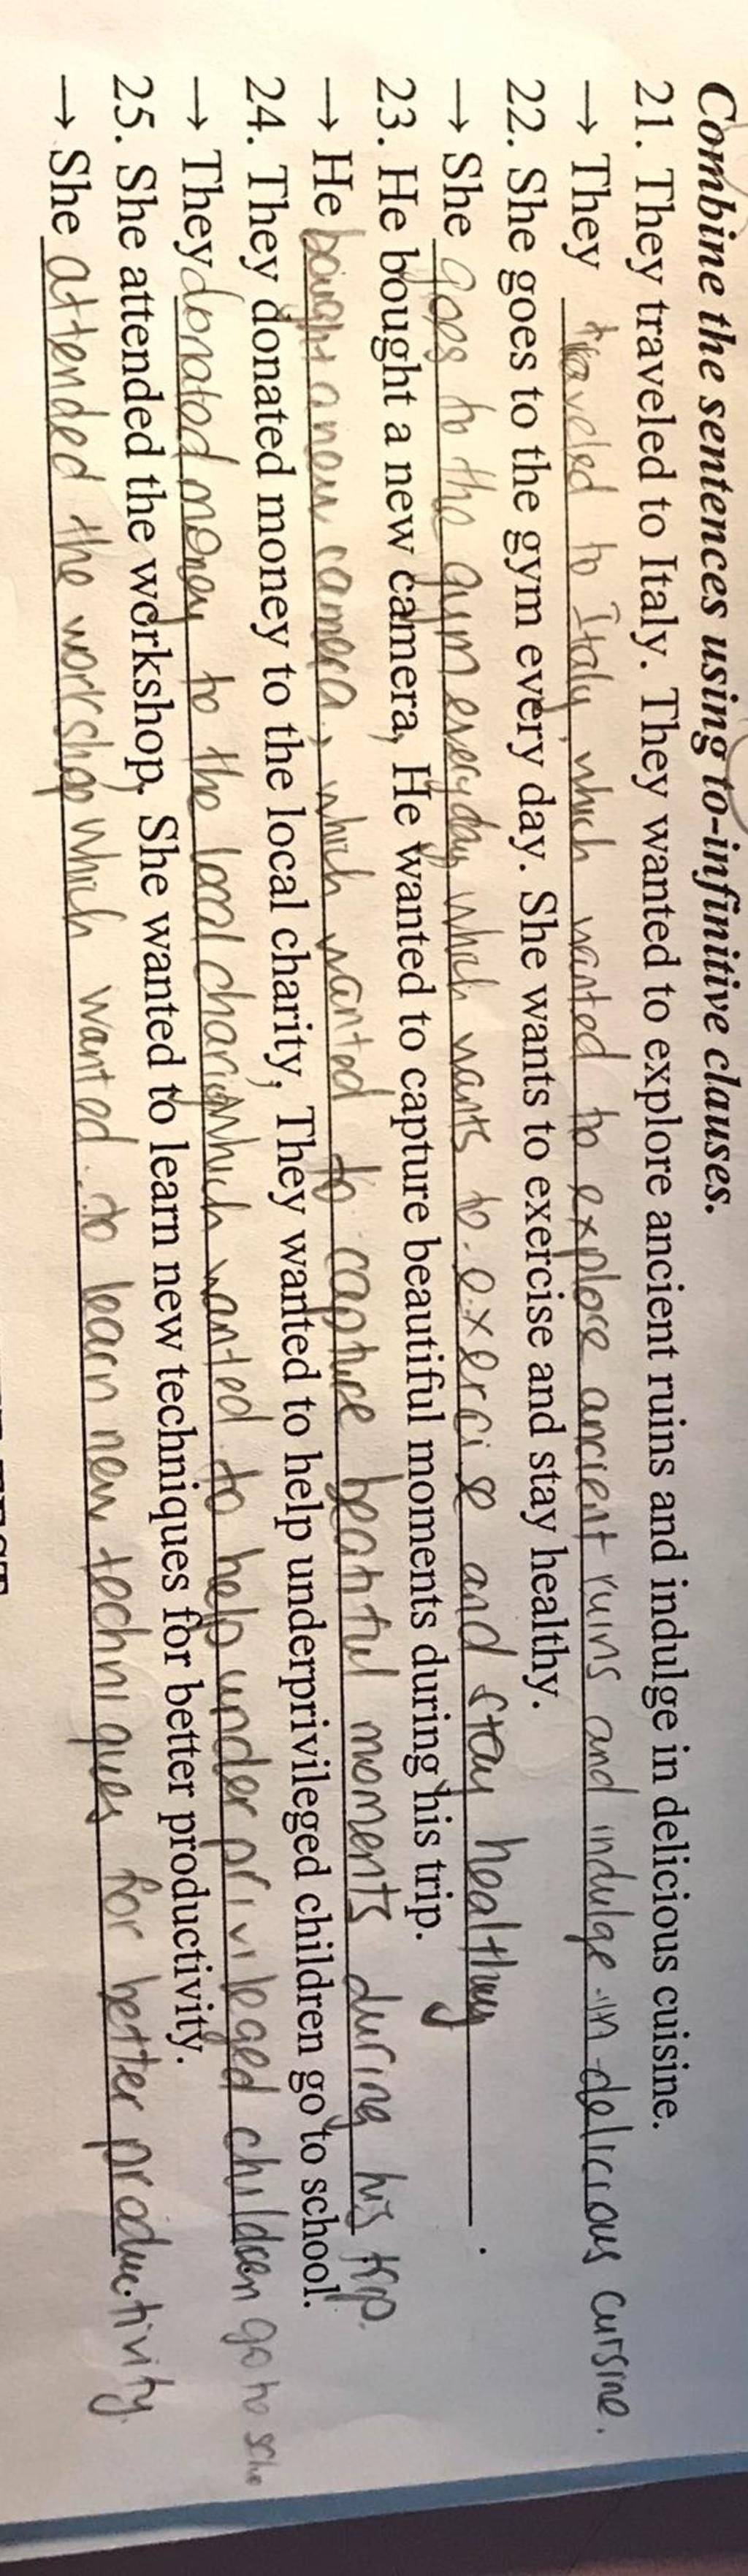 Combine the sentences using to-infinitive clauses.
21. They traveled to Italy. They wanted to explore ancient ruins and indulge in delicious cuisine.
→ They traveled to Italy, which wanted to explore ancient ruins and indulge in delicious cursine.
22. She goes to the gym every day. She wants to exercise and stay healthy.
→ She goes to the gym every day which wants to exercise and stay healthy.
23. He bought a new camera, He wanted to capture beautiful moments during his trip.
→ He bought a new camera, which wanted to capture beatiful moments during his trip.
24. They donated money to the local charity, They wanted to help underprivileged children go to school.
→ They donated money to the local which wanted to help underprivileged children go to
25. She attended the workshop. She wanted to learn new techniques for better productivity.
→ She attended the workshop which wanted to learn new techniques for better productivity.